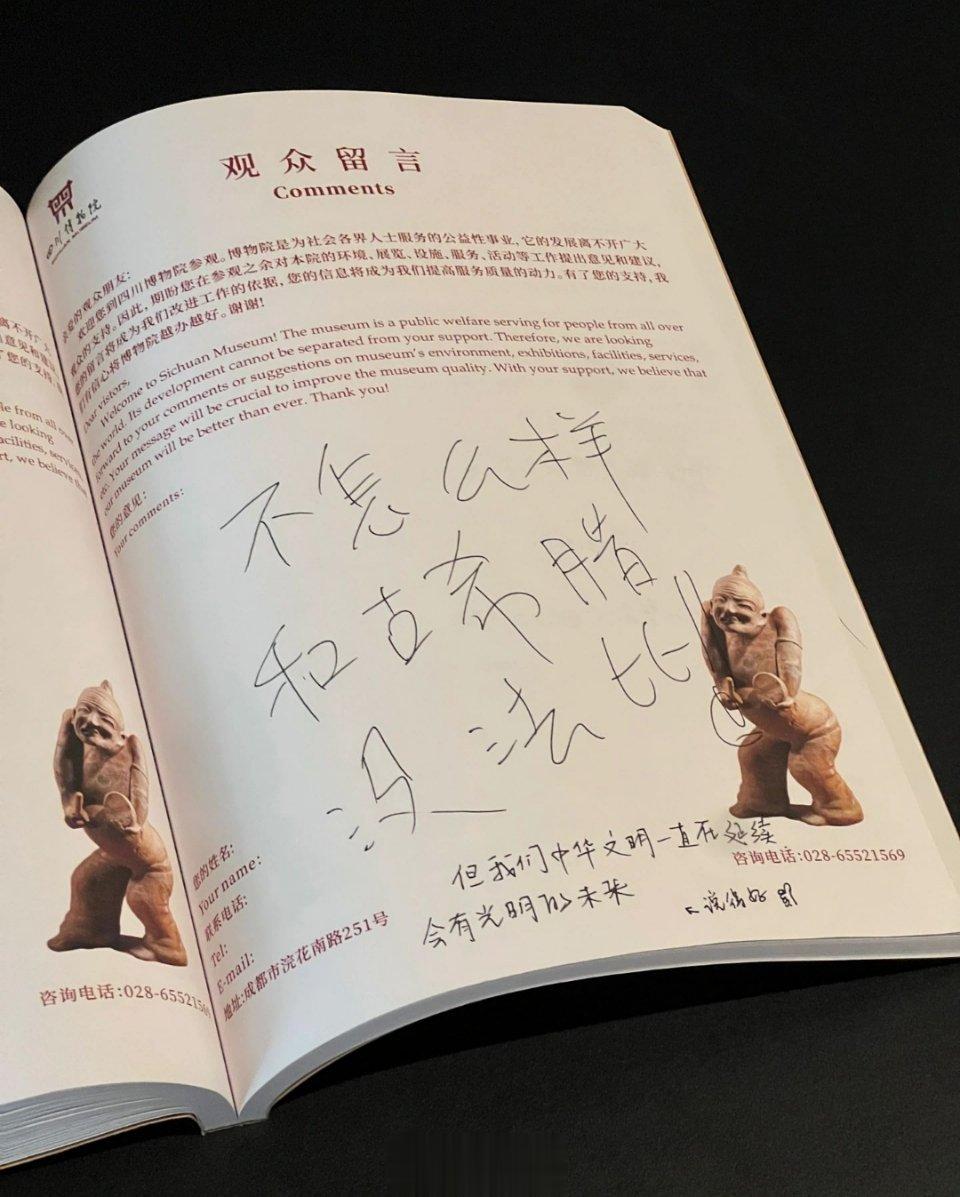 离不开广大
意见和建议,
了您的支持,我
ple from all over
e looking
acilities, services,
rt, we believe that
咨询电话:028-65521569
四川博物院
SICHUAN MUSEUM
观众留言
Comments
亲爱的观众朋友:
欢迎您到四川博物院参观。博物院是为社会各界人士服务的公益性事业,它的发展离不开广大
观众的支持。因此,期盼您在参观之余对本院的环境、展览、设施、服务、活动等工作提出意见和建议,
您的留言将成为我们改进工作的依据,您的信息将成为我们提高服务质量的动力。有了您的支持,我
们有信心将博物院越办越好。谢谢!
Dear vistors,
Welcome to Sichuan Museum! The museum is a public welfare serving for people from all over
the world. Its development cannot be separated from your support. Therefore, we are looking
forward to your comments or suggestions on museum's environment, exhibitions, facilities, services,
etc. Your message will be crucial to improve the museum quality. With your support, we believe that
our museum will be better than ever. Thank you!
您的意见:
Your comments:
不怎么样
和古希腊
没法比!
但我们中华文明一直在延续
会有光明的未来
说得好
您的姓名:
Your name:
联系电话:
Tel:
E-mail:
地址:成都市浣花南路251号
咨询电话:028-65521569